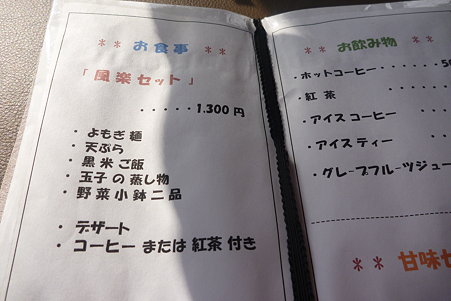 ** お食事 **
「風楽セット」
・・・・・1.300円
・よもぎ麺
・天ぷら
・黒米ご飯
・玉子の蒸し物
・野菜小鉢二品
・デザート
・コーヒー または 紅茶 付き
** お飲み物 **
・ホットコーヒー・・・・・
・紅茶
・アイスコーヒー
・アイスティー
・グレープフルーツジュー
** 甘味